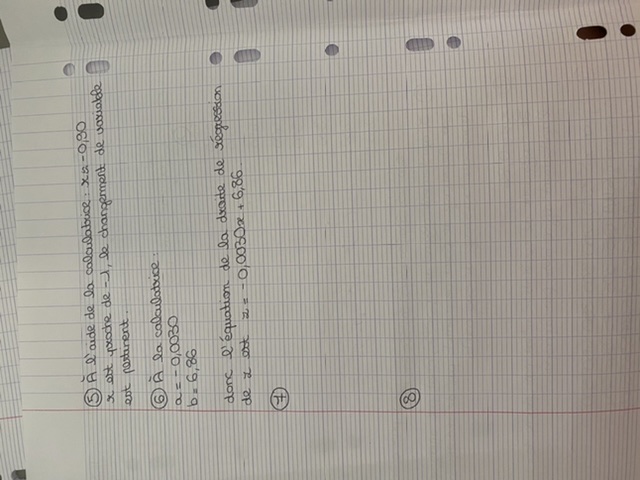 ⑤ À l'aide de la calculatrice : r ≈ -0,90
r est proche de -1, le changement de variable
est pertinent.
⑥ À la calculatrice :
a = -0,0030
b = 6,86
donc l'équation de la droite de régression
de z est z = -0,0030x + 6,86
⑦
⑧